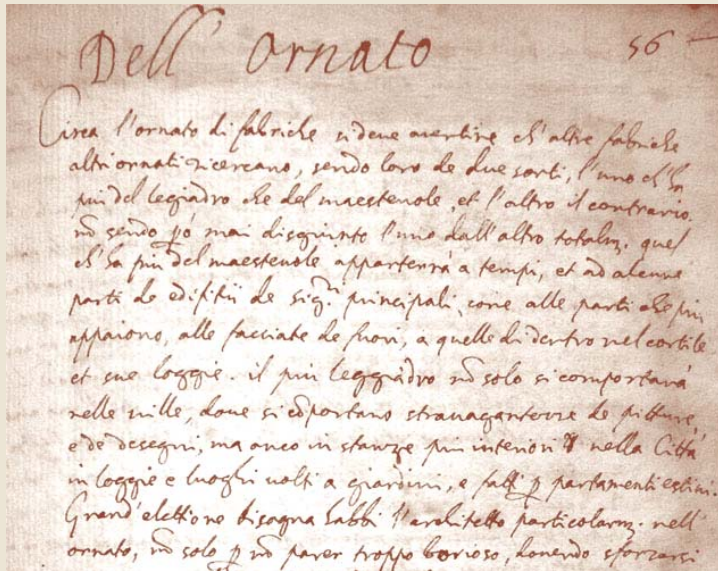 Dell' Ornato
56
Circa l'ornato di fabriche si deve avertire ch'altre fabriche
altri ornati ricercano, sendo loro de due sorti, l'uno ch'ha
più del legiadro che del maestevole, et l'altro il contrario.
nō sendo p̄ò mai disgiunto l'uno dall'altro totalm. quel
ch'ha più del maestevole apparterrà a tempi, et ad alcune
parti de edifitii de sig.ri principali, come alle parti che più
appaiono, alle facciate de fuori, a quelle di dentro nel cortile
et sue loggie. il più leggiadro nō solo si comportarà
nelle ville, dove si cōportano stravaganterie de pitture,
e de desegni, ma anco in stanze più interiori nella Città
in loggie e luoghi volti a giardini, e fatti p partamenti estivi.
Grand'elettione bisogna habbi l'architetto particolarm. nell'
ornato, nō solo p nō parer troppo borioso, dovendo sforzarsi